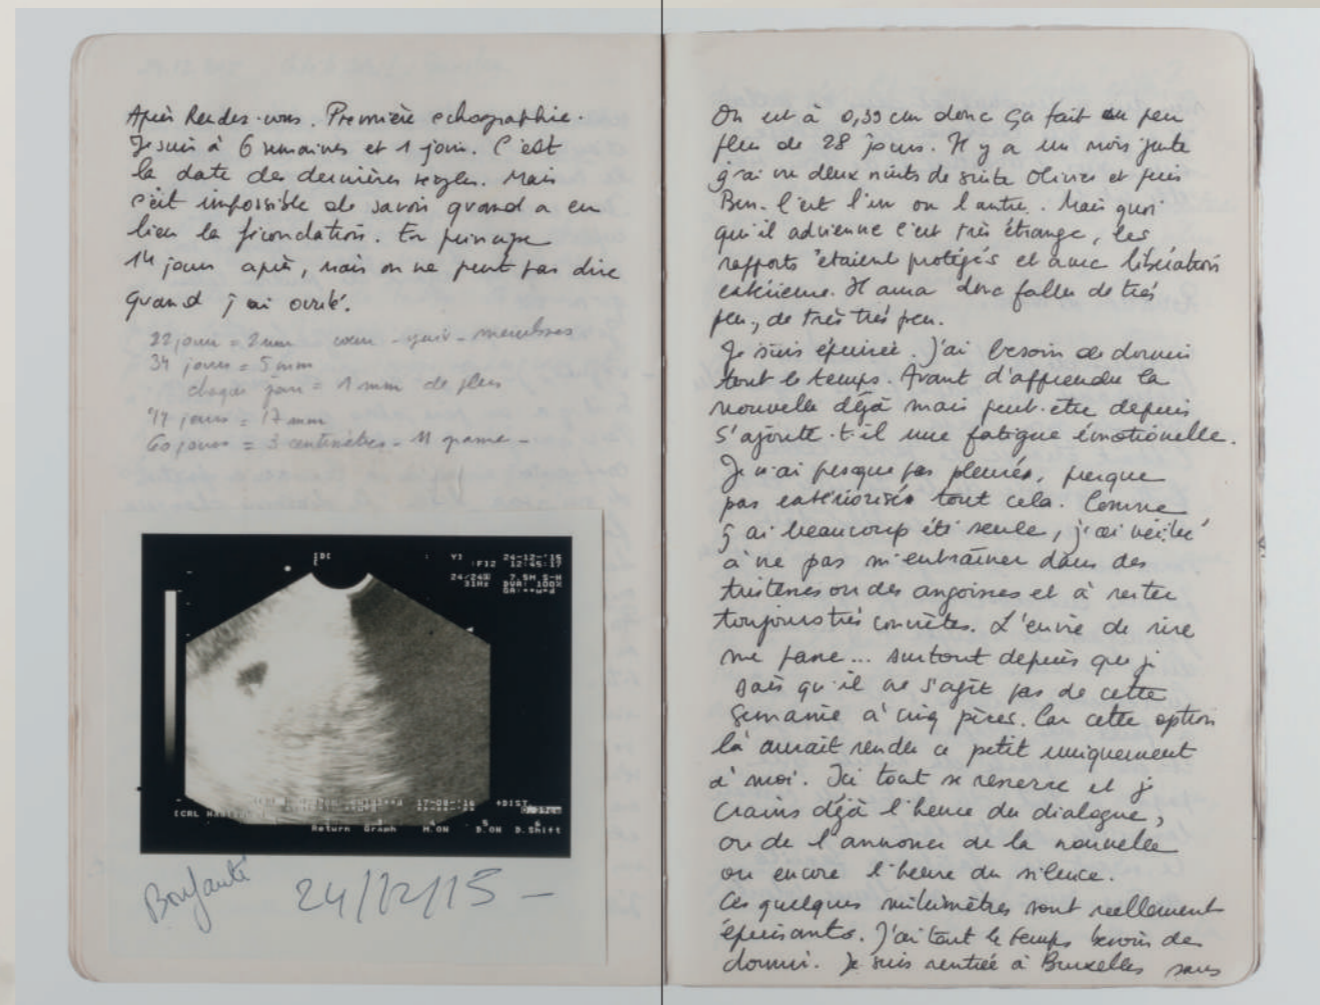 Après Rendez-vous. Première echographie.
Je suis à 6 semaines et 1 jour. C'est
la date des dernières règles. Mais
c'est impossible de savoir quand a eu
lieu la fécondation. En principe
14 jours après, mais on ne peut pas dire
quand j'ai ovulé.
22 jours = 2 mm cœur - - membres
34 jours = 5 mm
chaque jour = 1 mm de plus
47 jours = 17 mm
60 jours = 3 centimètres - 11 grame -
24-12-'15
12:45:17
7.5M S-H
31Hz DVA: 100%
17-08-'16 +DIST
0.39cm
Return Graph M.ON D.ON D.Shift
24/12/15 -
On est à 0,39 cm donc ça fait un peu
plus de 28 jours. Il y a un mois juste
j'ai vu deux nuits de suite Olivier et puis
Ben. C'est l'un ou l'autre. Mais quoi
qu'il advienne c'est très étrange, les
rapports étaient protégés et avec libération
extérieure. Il aura donc fallu de très
peu, de très très peu.
Je suis épuisée. J'ai besoin de dormir
tout le temps. Avant d'apprendre la
nouvelle déjà mais peut-etre depuis
s'ajoute-t-il une fatigue émotionelle.
Je n'ai presque pas pleurés, presque
pas extériorisés tout cela. Comme
j'ai beaucoup été seule, j'ai veillé
à ne pas m'entraîner dans des
tristesses ou des angoisses et à rester
toujours très concrètes. L'envie de rire
me passe... surtout depuis que je
sais qu'il ne s'agit pas de cette
semaine à cinq pères. Car cette option
là aurait rendu ce petit uniquement
à moi. Ici tout se resserre et je
crains déjà l'heure du dialogue,
ou de l'annonce de la nouvelle
ou encore l'heure du silence.
Ces quelques millimètres sont réellement
épuisants. J'ai tout le temps besoin de
dormir. Je suis rentrée à Bruxelles sans